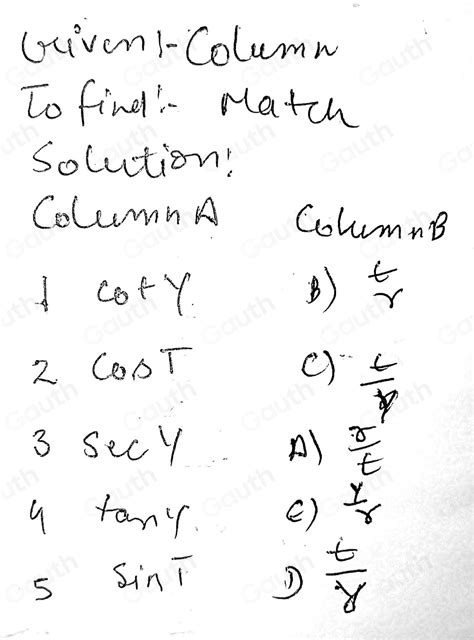 Given:- Column
To find:- Match
Solution:
Column A Column B
1 cot Y B) t/r
2 Cos T C) t/y
3 sec Y A) r/t
4 tan y E) y/r
5 sin T D) t/y